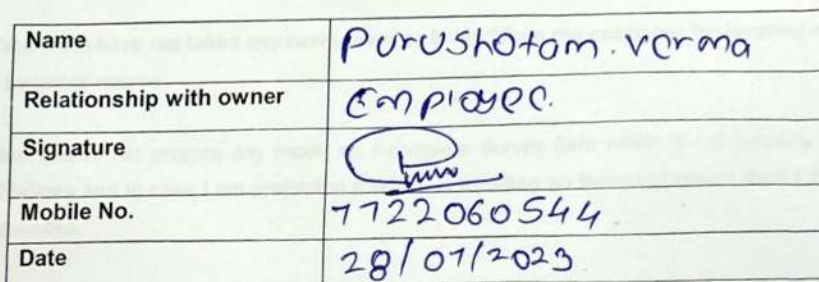 Name PurUShotam. Verma
Relationship with owner Employee.
Signature
Mobile No. 7722060544
Date 28/07/2023